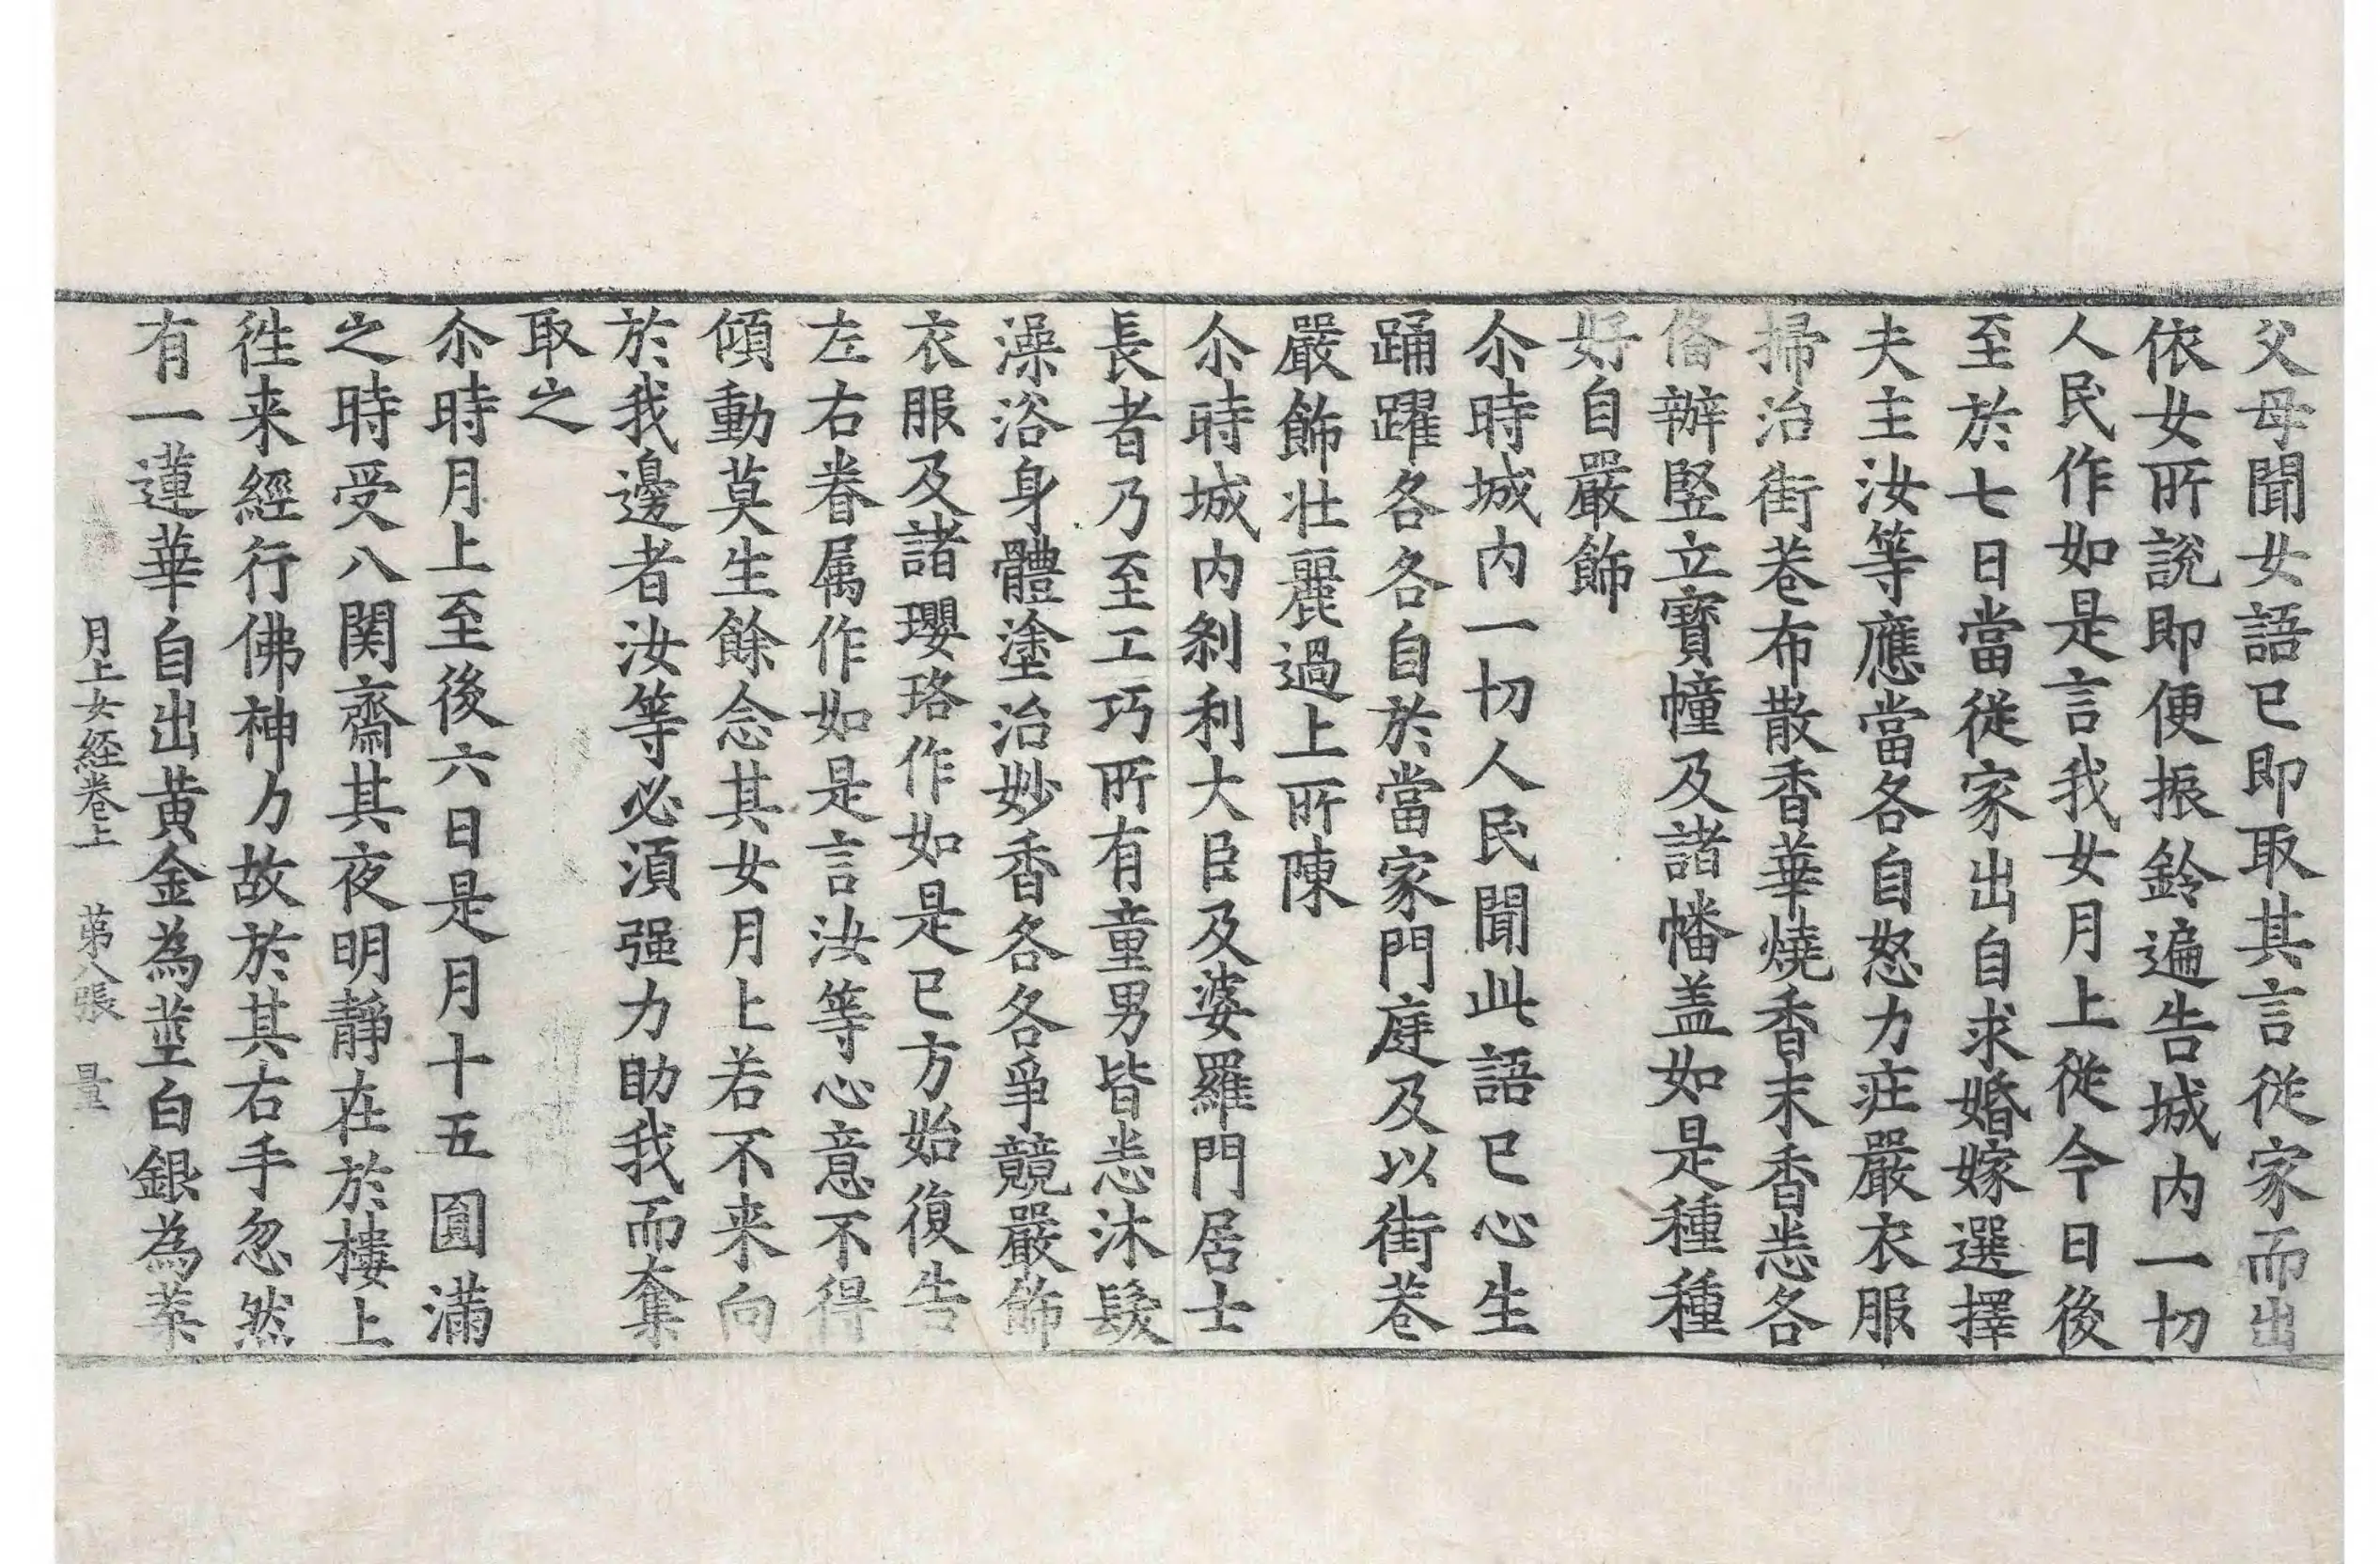 父母聞女語已即取其言從家而出
依女所說即便振鈴遍告城內一切
人民作如是言我女月上從今日後
至於七日當從家出自求婚嫁選擇
夫主汝等應當各自怒力庄嚴衣服
掃治街巷布散香華燒香末香悉各
俻辦竪立寶幢及諸幡盖如是種種
好自嚴飾
尒時城內一切人民聞此語已心生
踊躍各各自於當家門庭及以街巷
嚴飾壯麗過上所陳
尒時城內刹利大臣及婆羅門居士
長者乃至工巧所有童男皆悉沐髮
澡浴身體塗治妙香各各爭競嚴飾
衣服及諸瓔珞作如是已方始復告
左右眷属作如是言汝等心意不得
傾動莫生餘念其女月上若不来向
於我邊者汝等必湏强力助我而奪
取之
尒時月上至後六日是月十五圓滿
之時受八関齋其夜明靜在於樓上
徃来經行佛神力故於其右手忽然
有一蓮華自出黃金為莖白銀為葉
月上女経卷上 苐八張 量